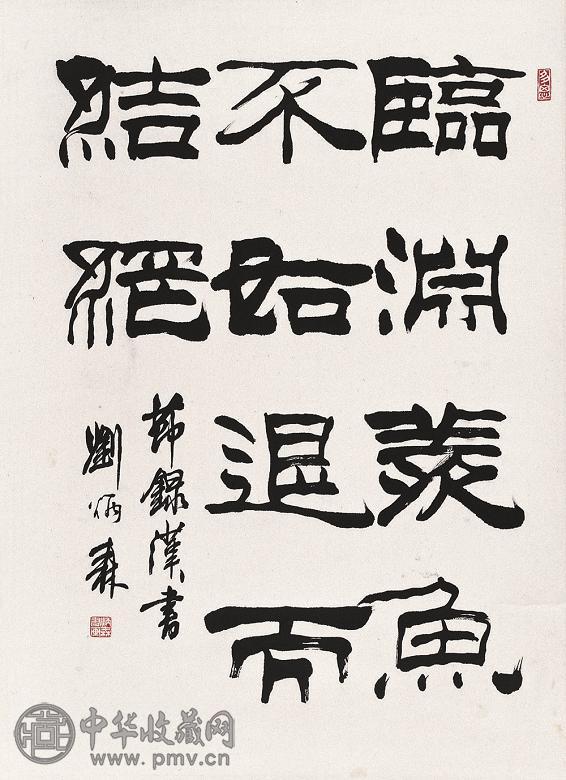 臨淵羨魚
不如退而
結網
節錄漢書
劉炳森
中华收藏网
www.pmv.cn